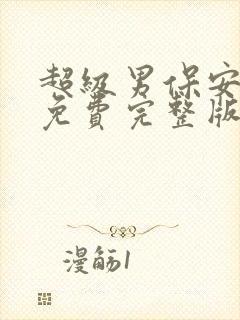 超级男保安
免費完整版
漫觞1